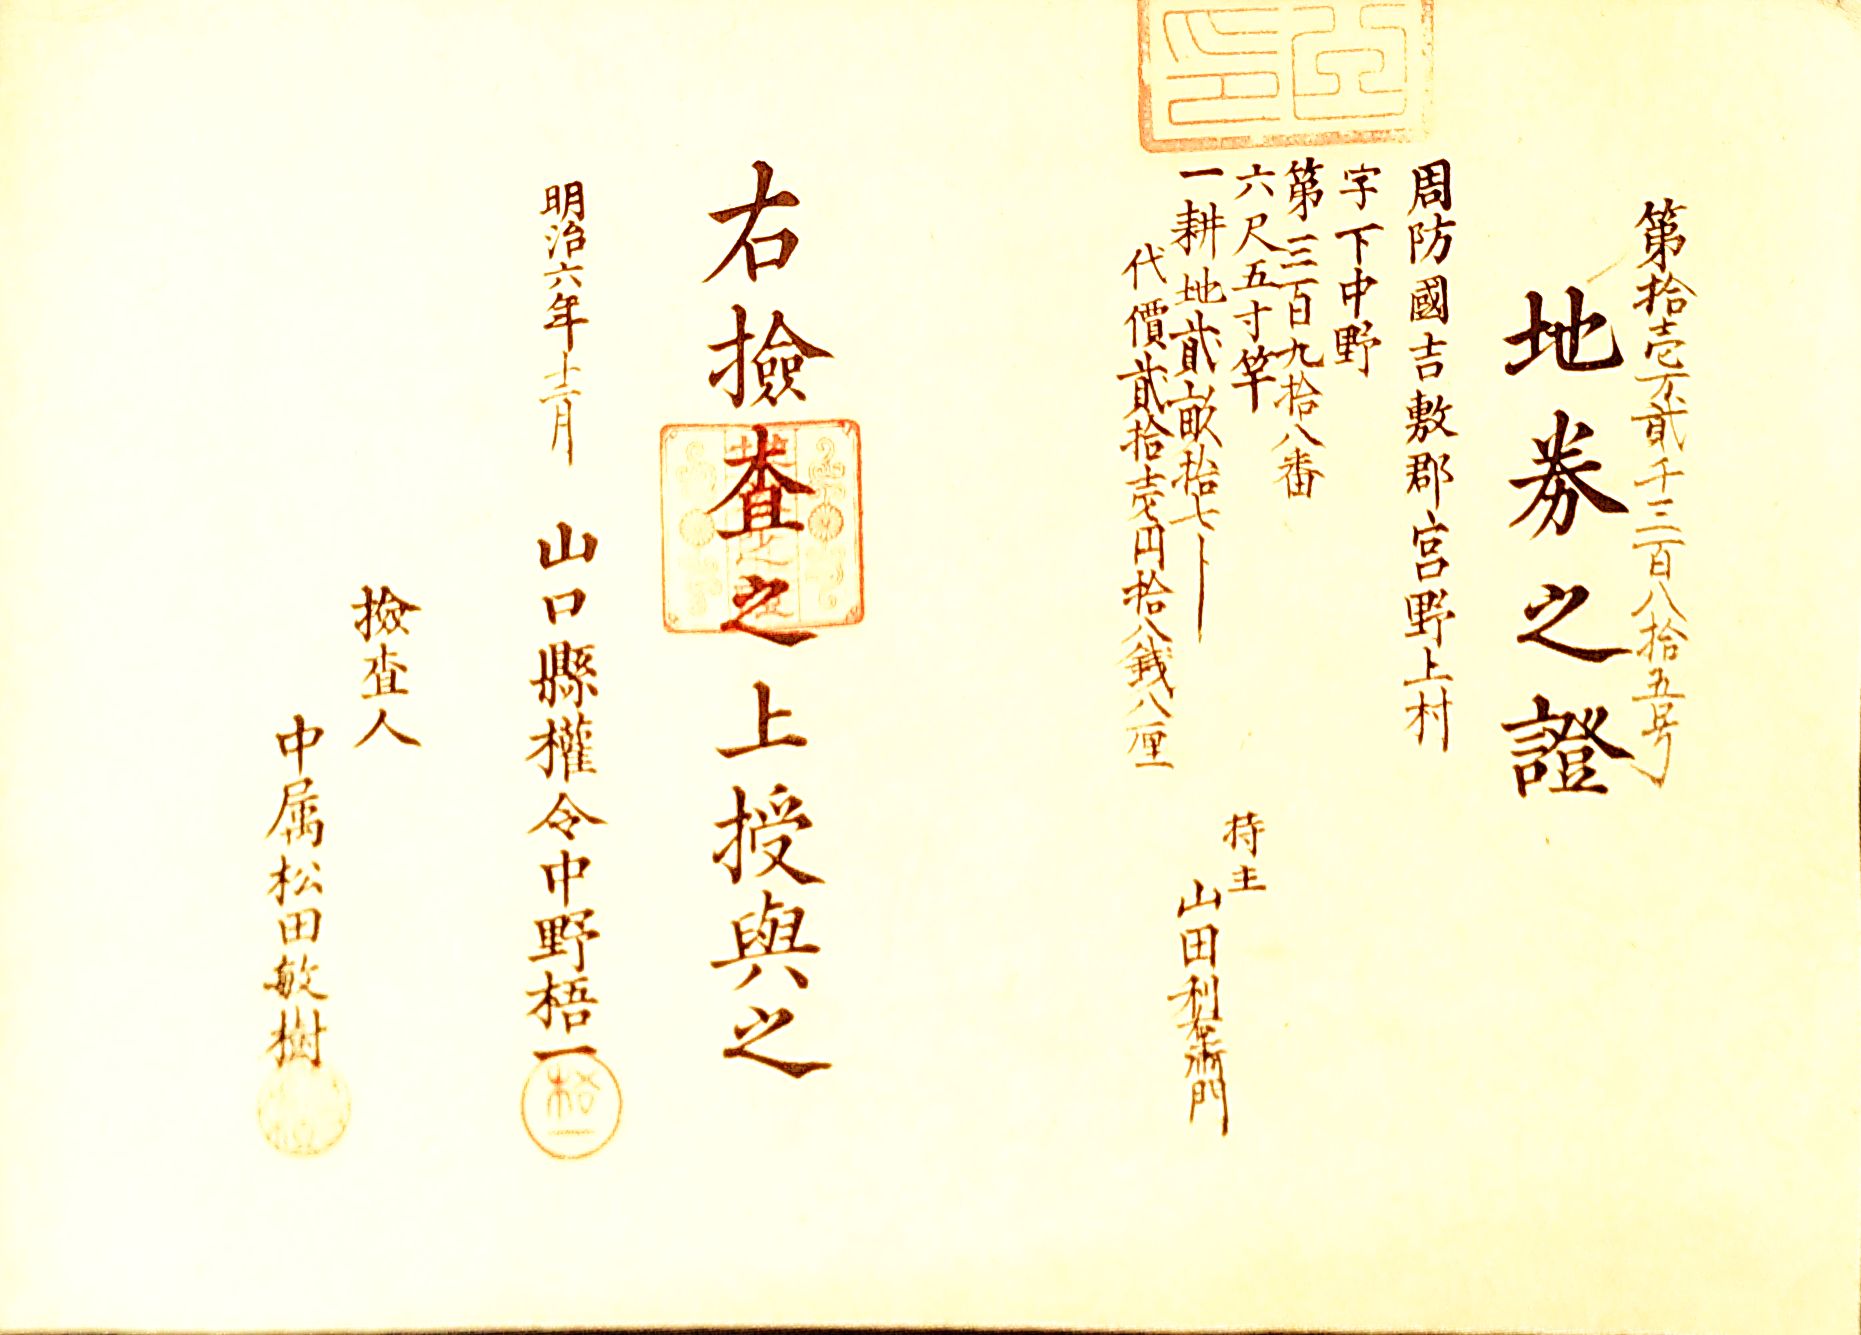 第拾壱万貳千三百八拾五号
地券之證
周防國吉敷郡宮野上村
字下中野
第三百九拾八番
六尺五寸竿
一耕地貳畝拾七ト
代價貳拾壱円拾八銭八厘
持主
山田利右衛門
右撿査之上授與之
明治六年十二月 山口縣權令中野梧一
撿査人
中属松田敏樹